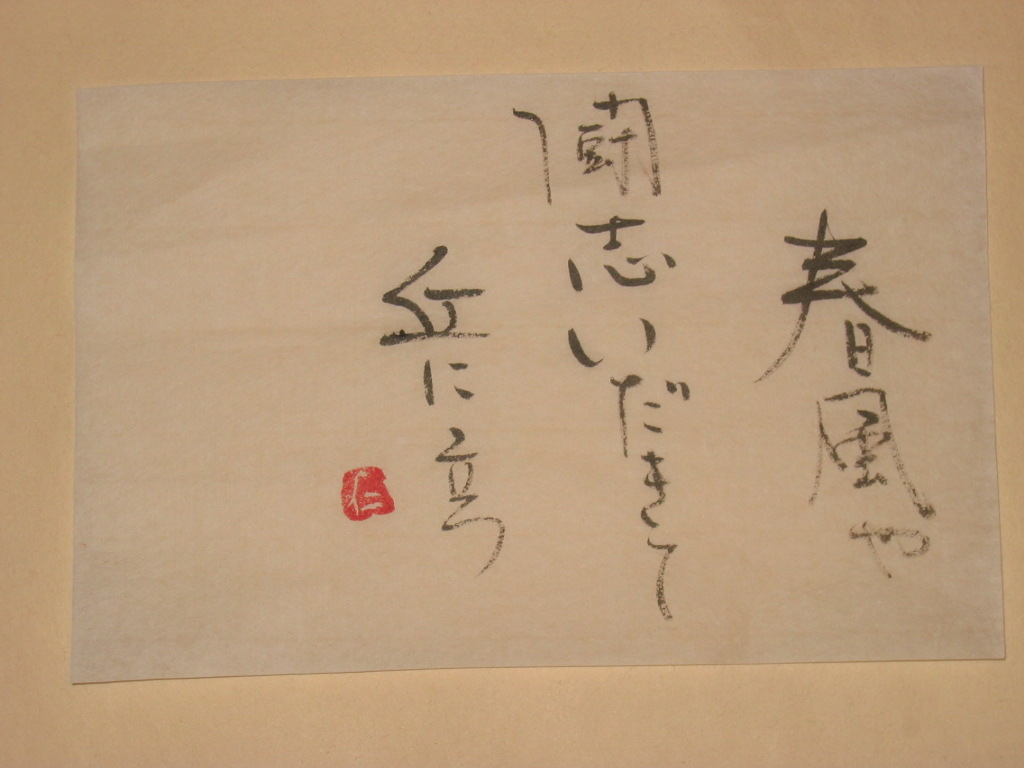 春風や
闘志いだきて
丘に立つ
仁